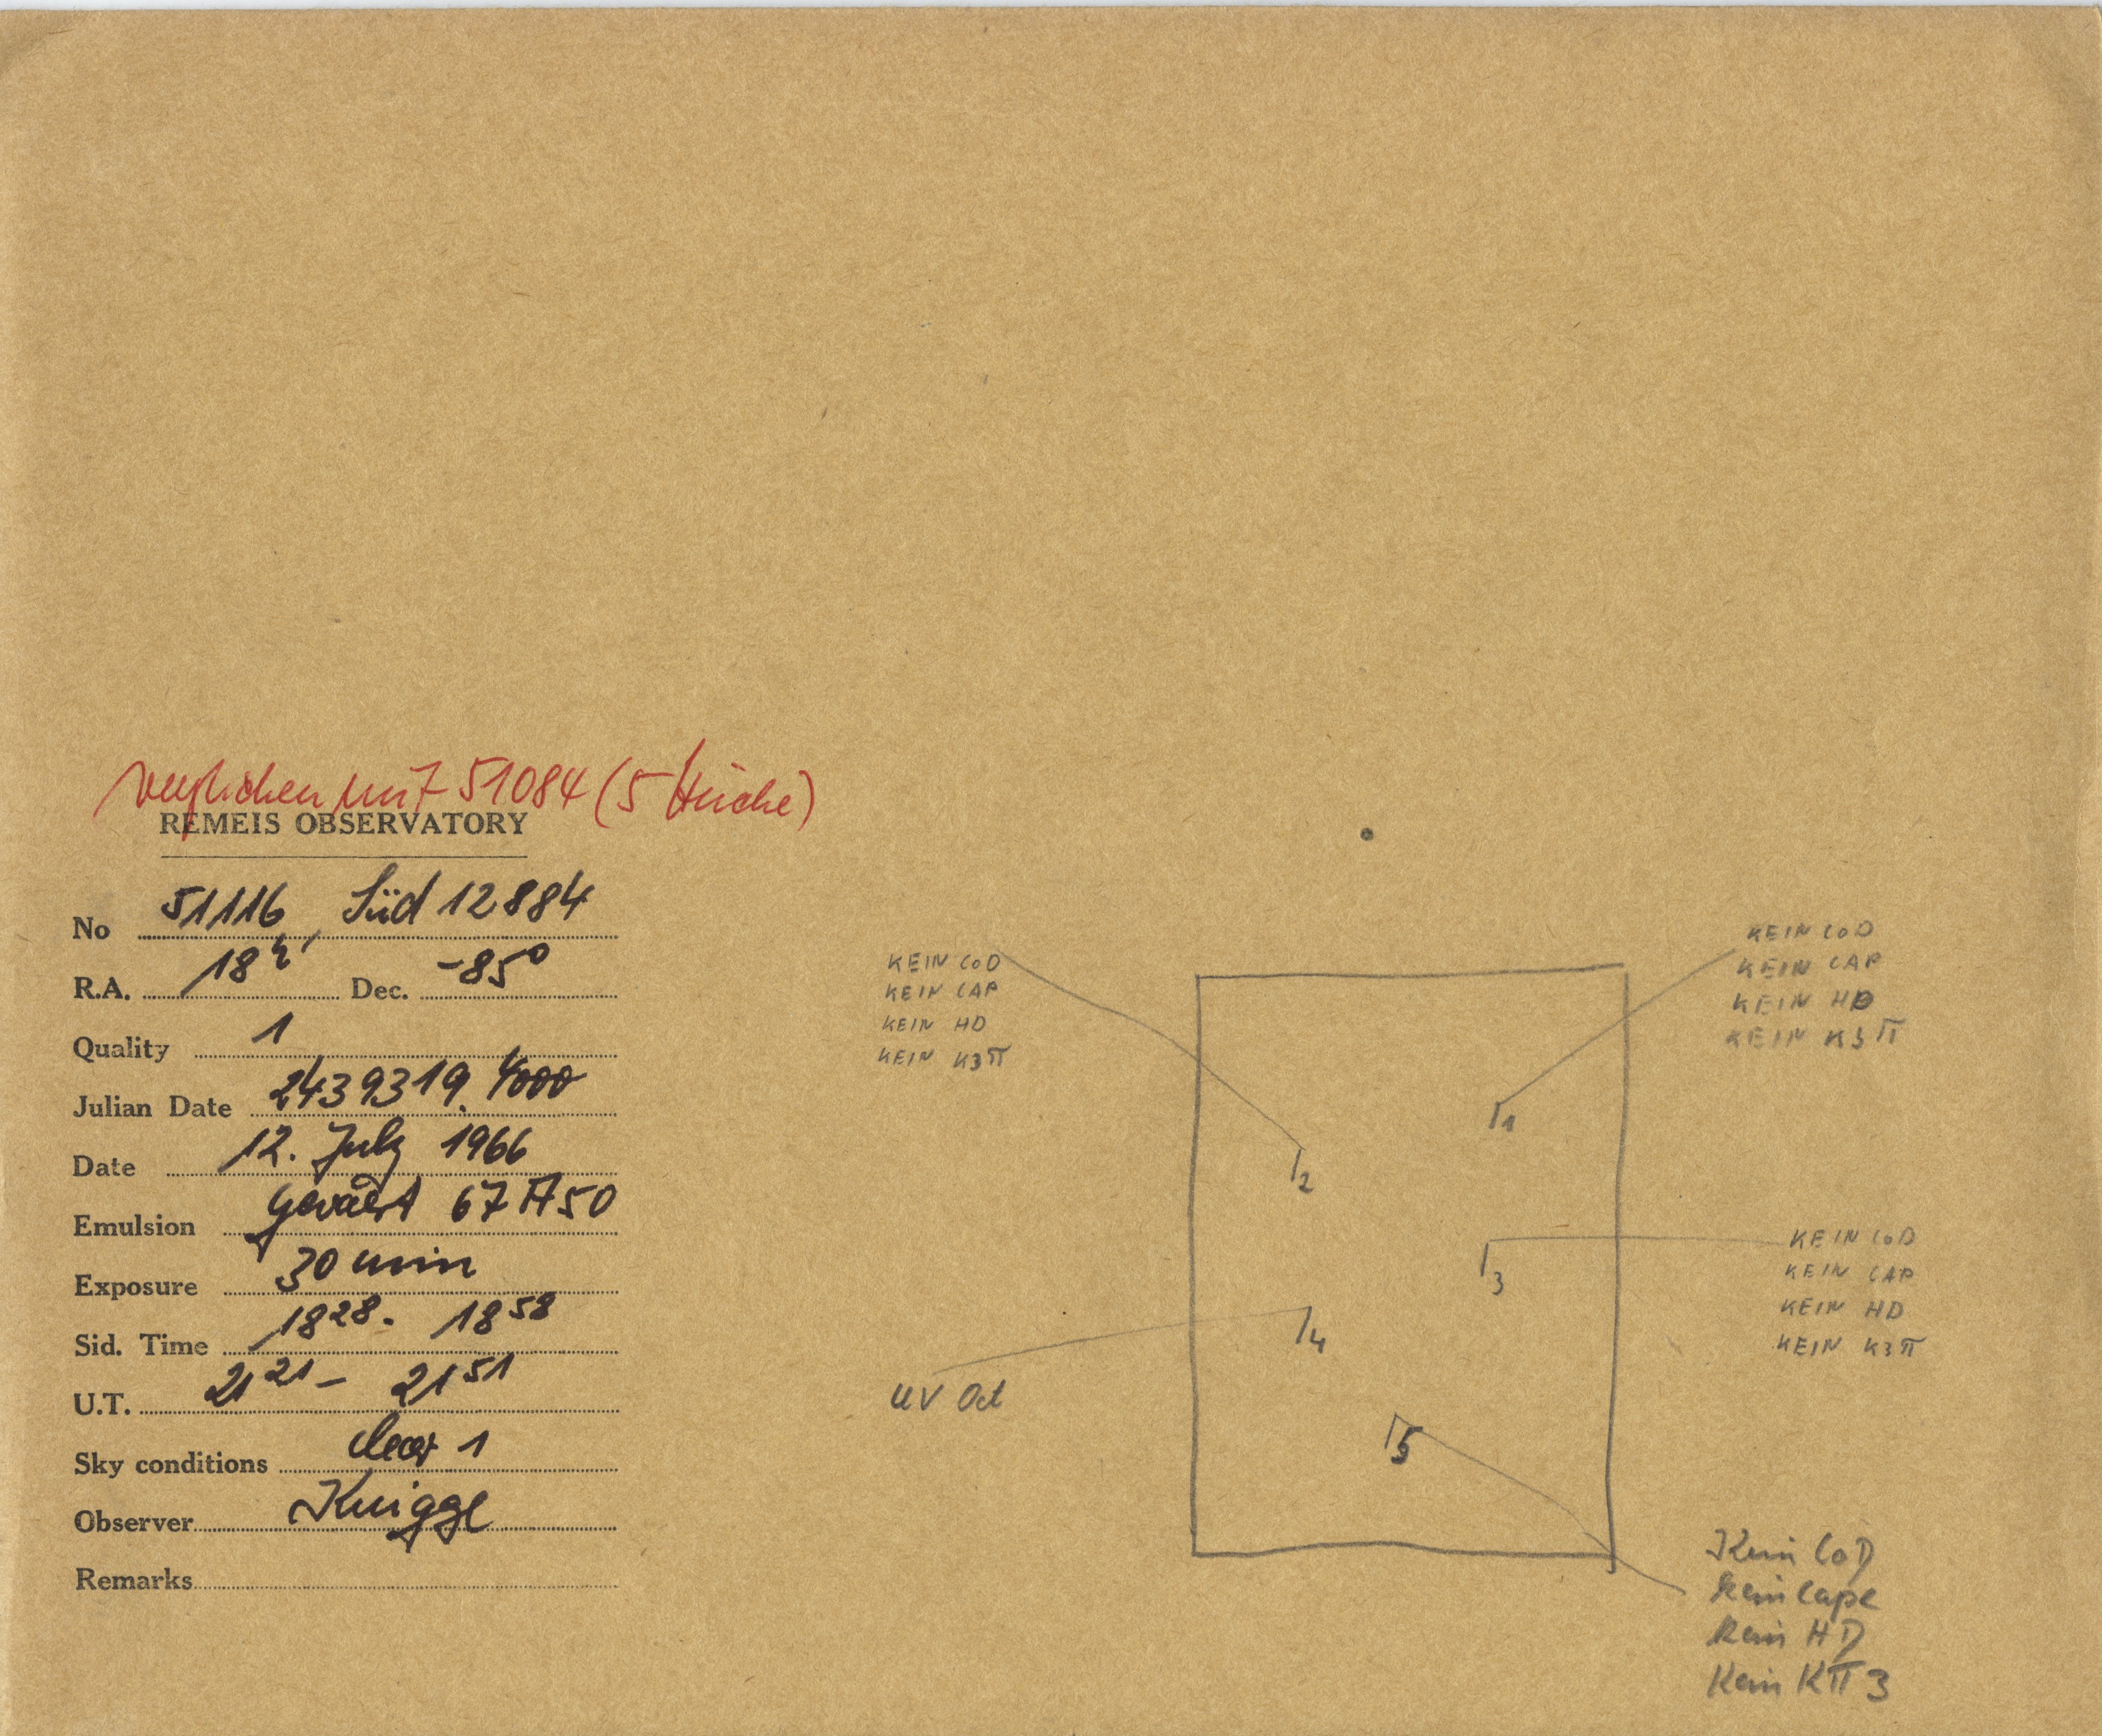 verglichen mit 51084 (5 Striche)
REMEIS OBSERVATORY
No 51116, Süd 12884
R.A. 18h Dec. -85°
Quality 1
Julian Date 2439319.4000
Date 12. July 1966
Emulsion Gevaert 67A50
Exposure 30 min
Sid. Time 18 28 - 18 58
U.T. 21 21 - 21 51
Sky conditions clear 1
Observer Knigge
Remarks
KEIN CoD
KEIN CAP
KEIN HD
KEIN K3π
KEIN CoD
KEIN CAP
KEIN HD
KEIN K3π
1
2
3
KEIN CoD
KEIN CAP
KEIN HD
KEIN K3π
4
UV Oct
5
Kein CoD
Kein Cape
Kein HD
Kein Kπ3